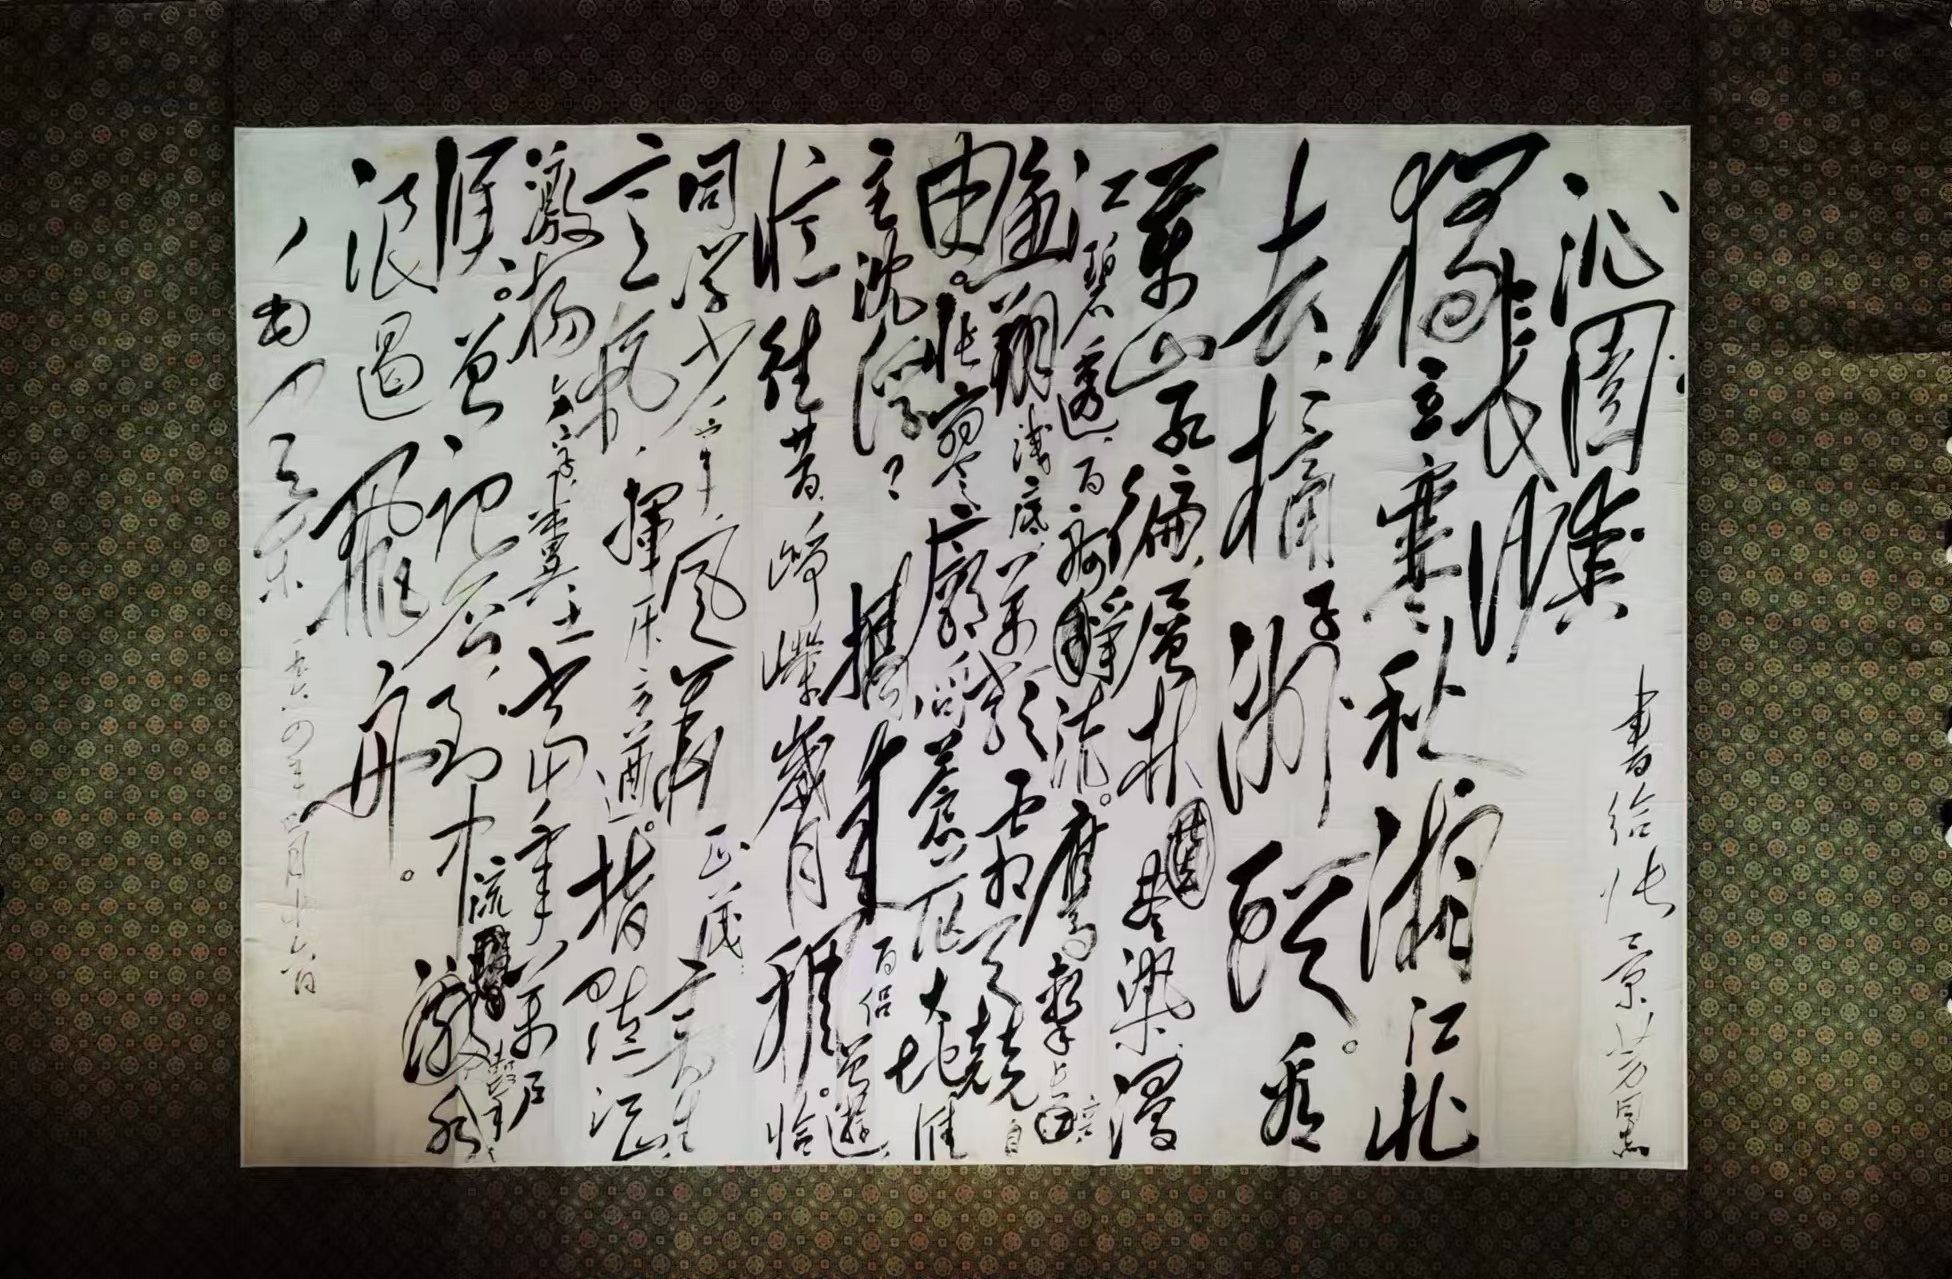 沁園春
長沙
獨立寒秋湘江北
去、橘子洲頭。看
萬山紅遍、層林盡染、漫
江碧透、百舸爭流。鷹擊長空
魚翔淺底、萬類霜天競自
由。悵寥廓、問蒼茫大地誰
主沈浮？攜來百侶曾遊、
憶往昔、崢嶸歲月稠。恰
同學少年、風華正茂、書生
意氣、揮斥方遒。指點江山
激揚文字、糞土當年萬戶
侯。曾記否、到中流擊水
浪遏飛舟。